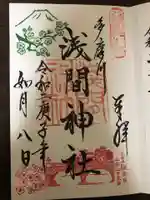 多摩川
浅間神社
奉拝
令和二庚子年
如月八日